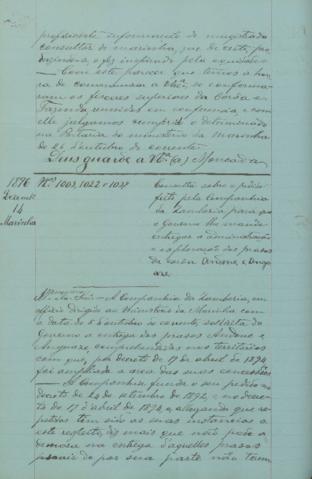 profissional informamento do magistrado
consultor de marinha, que de certo, pro-
duzindo, o fez inspirado pela equidade.
— Com este parecer que temos a hon-
ra de communicar a V. Ex.ª se conforma-
ram os fiscaes superiores da Corôa e
Fazenda, reunidos em conferencia, e com
elle julgamos cumprido o determinado
na Portaria do ministerio da Marinha
de 26 d'outubro do corrente.
Deus guarde a V. Ex.ª (a) Moncada
1896
Dezembro
14
Marinha
N.os 1003, 1022 e 1038
Consulta sobre o pedido
feito pela Companhia
da Zambezia para que
o Governo lhe mande
entregar a administração
e exploração dos prazos
da coroa Andone e Angu-
aze.
Ill.mo e Ex.mo Snr. — A Companhia da Zambezia, em
officio dirigido ao Ministerio da Marinha com
a data de 5 d'outubro do corrente, sollicita do
Governo a entrega dos prazos Andone e
Anguaze, comprehendidos nos territorios
com que, por decreto de 17 de abril de 1894
foi ampliada a area das suas concessões
— A Companhia funda o seu pedido no
decreto de 24 de setembro de 1892, e no decre-
to de 17 d'abril de 1894, e allegando que re-
petidas tem sido as suas instancias a
este respeito, diz mais que não pode a
demora na entrega d'aquelles prazos
por sua parte não tem